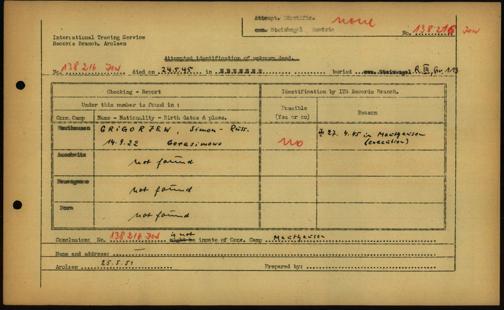 Attempt. Identific. none
cem. Steinhogel Austria
No. 138 216 Jew
International Tracing Service
Records Branch, Arolsen
Attempted identification of unknown dead.
No. 138 216 Jew died on 24.5.45 in buried cem. Steinkogel R. III, Gr. 113
Checking - Report
Identification by ITS Records Branch.
Under this number is found in :
Possible (Yes or no)
Reason
Conc. Camp
Name - Nationality - Birth dates & place.
Mauthausen
GRIGORJEW, Simon - Russ.
14.9.22 Gerasimowo
no
27.4.45 in Mauthausen
(execution)
Auschwitz
not found
Neuengamme
not found
Dora
not found
Conclusion: No. 138 216 Jew is not might be inmate of Conc. Camp Mauthausen
Name and address:
Arolsen 25.5.51 Prepared by: